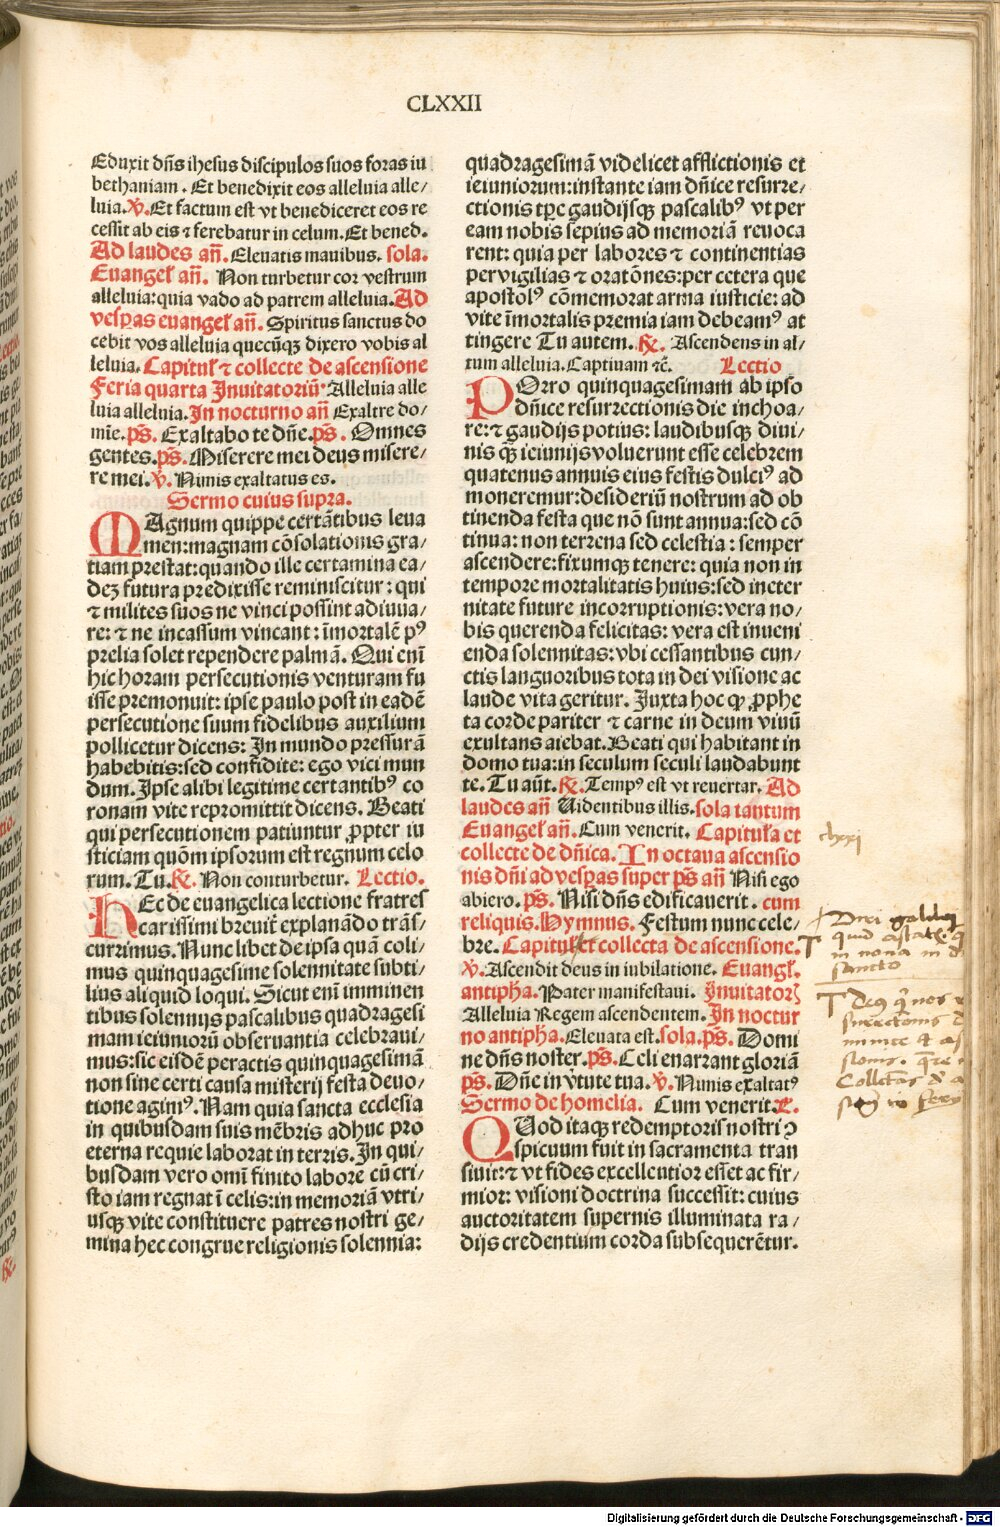 CLXXII
Eduxit dn̄s ihesus discipulos suos foras iu
bethaniam. Et benedixit eos alleluia alle/
luia. v̄. Et factum est vt benediceret eos re
cessit ab eis ⁊ ferebatur in celum. Et bened.
Ad laudes an̄. Eleuatis manibus. sola.
Euangeł an̄. Non turbetur cor vestrum
alleluia: quia vado ad patrem alleluia. Ad
vesꝑas euangeł an̄. Spiritus sanctus do
cebit vos alleluia quecūqꝫ dixero vobis al
leluia. Capituł ⁊ collecte de ascensione
Feria quarta Inuitatoriū Alleluia alle
luia alleluia. In nocturno an̄ Exaltre do/
mīe. ps̄. Exaltabo te dn̄e. ps̄. Omnes
gentes. ps̄. Miserere mei deus misere/
re mei. v̄. Nimis exaltatus es.
Sermo cuius supra.
MAgnum quippe certātibus leua
men: magnam cōsolationis gra/
tiam prestat: quando ille certamina ea/
dez futura predixisse reminiscitur: qui
⁊ milites suos ne vinci possint adiuua/
re: ⁊ ne incassum vincant: īmortalē pꝰ
prelia solet rependere palmā. Qui enī
hic horam persecutionis venturam fu
isse premonuit: ipse paulo post in eadē
persecutione suum fidelibus auxilium
pollicetur dicens: In mundo pressurā
habebitis: sed confidite: ego vici mun
dum. Ipse alibi legitime certantibꝰ co
ronam vite repromittit dicens. Beati
qui persecutionem patiuntur ꝓpter iu
sticiam quōm ipsorum est regnum celo
rum. Tu. ℟. Non conturbetur. Lectio.
HEc de euangelica lectione fratres
carissimi breuit̄ explanādo trās/
currimus. Nunc libet de ipsa quā coli/
mus quinquagesime solennitate subti/
lius aliquid loqui. Sicut enī imminen
tibus solennijs pascalibus quadragesi
mam ieiuniorū obseruantia celebraui/
mus: sic eisdē peractis quinquagesimā
non sine certi causa misterij festa deuo/
tione agimꝰ. Nam quia sancta ecclesia
in quibusdam suis mēbris adhuc pro
eterna requie laborat in terris. In qui/
busdam vero omī finito labore cū cri/
sto iam regnat ī celis: in memoriā vtri/
usqꝫ vite constituere patres nostri ge/
mina hec congrue religionis solennia:
quadragesimā videlicet afflictionis et
ieiuniorum: instante iam dn̄ice resurre/
ctionis tꝑe gaudijsqꝫ pascalibꝰ vt per
eam nobis sepius ad memoriā reuoca
rent: quia per labores ⁊ continentias
peruigilias ⁊ oratōnes: per cetera que
apostolꝰ cōmemorat arma iusticie: ad
vite īmortalis premia iam debeamꝰ at
tingere Tu autem. ℟. Ascendens in al/
tum alleluia. Captiuam ⁊c̄. Lectio
POrro quinquagesimam ab ipso
dn̄ice resurectionis die inchoa/
re: ⁊ gaudijs potius: laudibusqꝫ diui/
nis qꝫ ieiunijs voluerunt esse celebrem
quatenus annuis eius festis dulciꝰ ad
moneremur: desideriū nostrum ad ob
tinenda festa que nō sunt annua: sed cō
tinua: non terrena sed celestia: semper
ascendere: fixumqꝫ tenere: quia non in
tempore mortalitatis huius: sed in eter
nitate future incorruptionis: vera no/
bis querenda felicitas: vera est inueni
enda solennitas: vbi cessantibus cun/
ctis languoribus tota in dei visione ac
laude vita geritur. Juxta hoc qꝫ ꝓphe
ta corde pariter ⁊ carne in deum viuū
exultans aiebat. Beati qui habitant in
domo tua: in seculum seculi laudabunt
te. Tu aūt. ℟. Tempꝰ est vt reuertar. Ad
laudes an̄ Uidentibus illis. sola tantum
Euangeł an̄. Cum venerit. Capituła et
collecte de dn̄ica. In octaua ascensio
nis dn̄i ad vesꝑas super ps̄ an̄ Nisi ego
abiero. ps̄. Nisi dn̄s edificauerit. cum
reliquis. Hymnus. Festum nunc cele/
bre. Capituł et collecta de ascensione.
v̄. Ascendit deus in iubilatione. Euangł.
antipha. Pater manifestaui. Inuitatorꝫ
Alleluia Regem ascendentem. In noctur
no antipha. Eleuata est. sola. ps̄. Domi
ne dn̄s noster. ps̄. Celi enarrant gloriā
ps̄. Dn̄e in v̄tute tua. v̄. Nimis exaltatꝰ
Sermo de homelia. Cum venerit. ℟.
QUod itaqꝫ redemptoris nostri ꝯ
spicuum fuit in sacramenta tran
siuit: ⁊ vt fides excellentior esset ac fir/
mior: visioni doctrina successit: cuius
auctoritatem supernis illuminata ra/
dijs credentium corda subsequerētur.
Digitalisierung gefördert durch die Deutsche Forschungsgemeinschaft - DFG